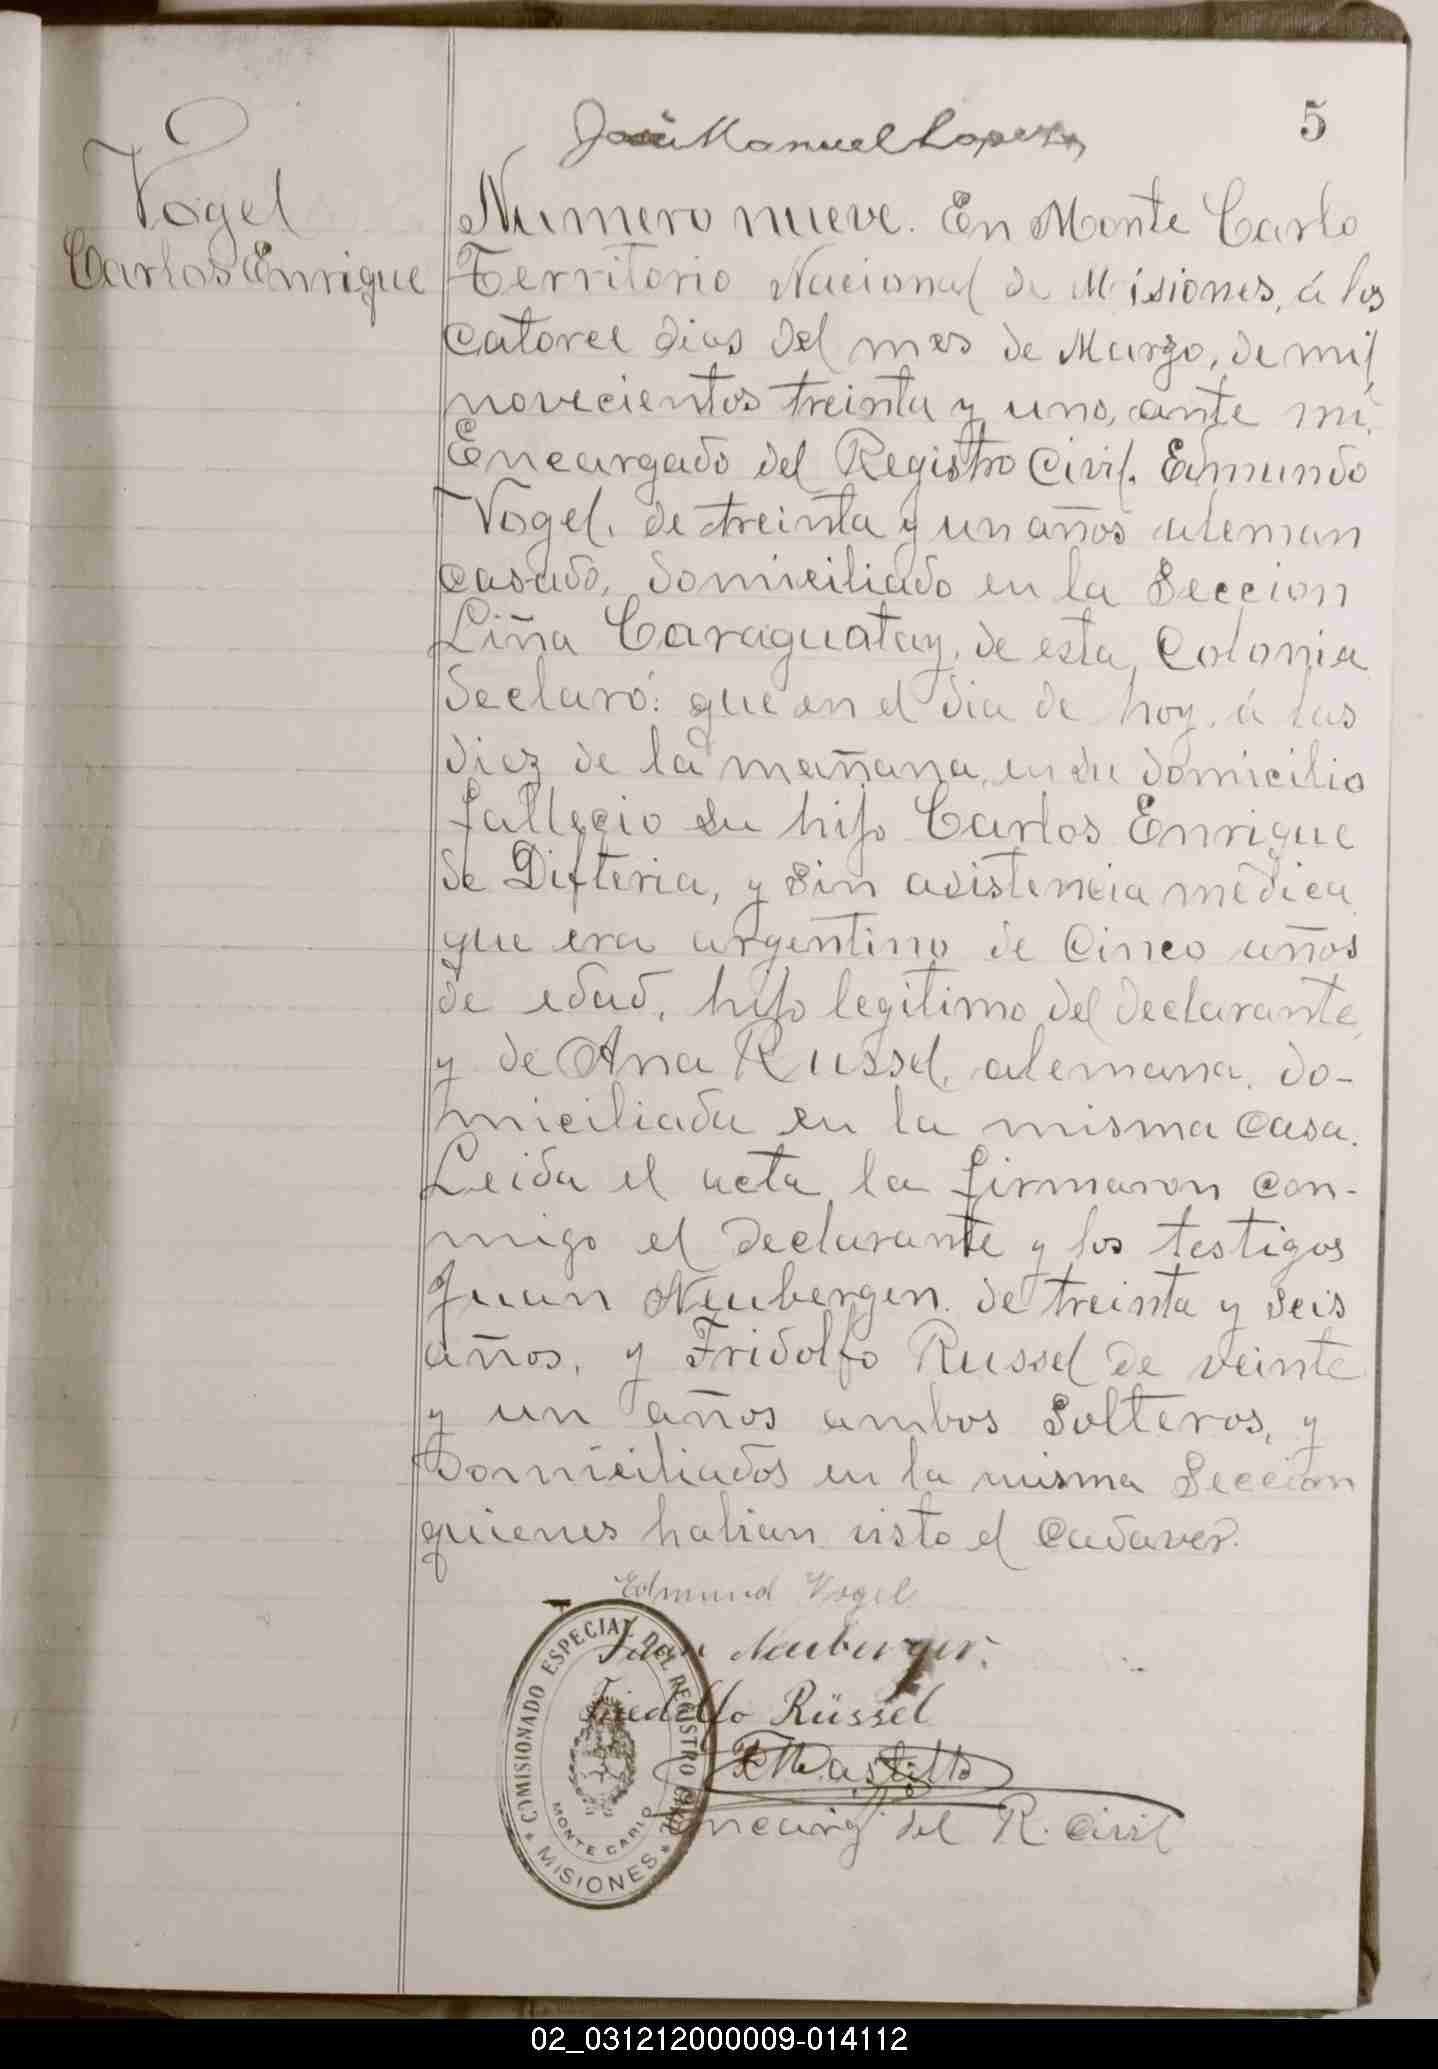 5
José Manuel Lopez
Vogel
Carlos Enrique
Numero nueve. En Monte Carlo
Territorio Nacional de Misiones, á los
catorce dias del mes de Marzo, de mil
novecientos treinta y uno, ante mi.
Encargado del Registro Civil. Edmundo
Vogel. de treinta y un años aleman
casado, domiciliado en la Seccion
Liña Caraguatay, de esta Colonia
declaró: que en el dia de hoy, á las
diez de la mañana, en su domicilio
fallecio su hijo Carlos Enrique
de Difteria, y sin asistencia médica
que era argentino de cinco años
de edad, hijo legitimo del declarante,
y de Ana Russel, alemana, do-
miciliada en la misma casa.
Leida el acta, la firmaron con-
migo el declarante y los testigos
Juan Neubergen. de treinta y seis
años, y Fridolfo Russel de veinte
y un años ambos Solteros, y
domiciliados en la misma Seccion
quienes habian visto el cadaver.
Edmund Vogel
Neuberger.
Friedolfo Rüssel
Encarg. del R. Civil
COMISIONADO ESPECIAL DEL REGISTRO CIVIL
MONTE CARLO
MISIONES
02_031212000009-014112